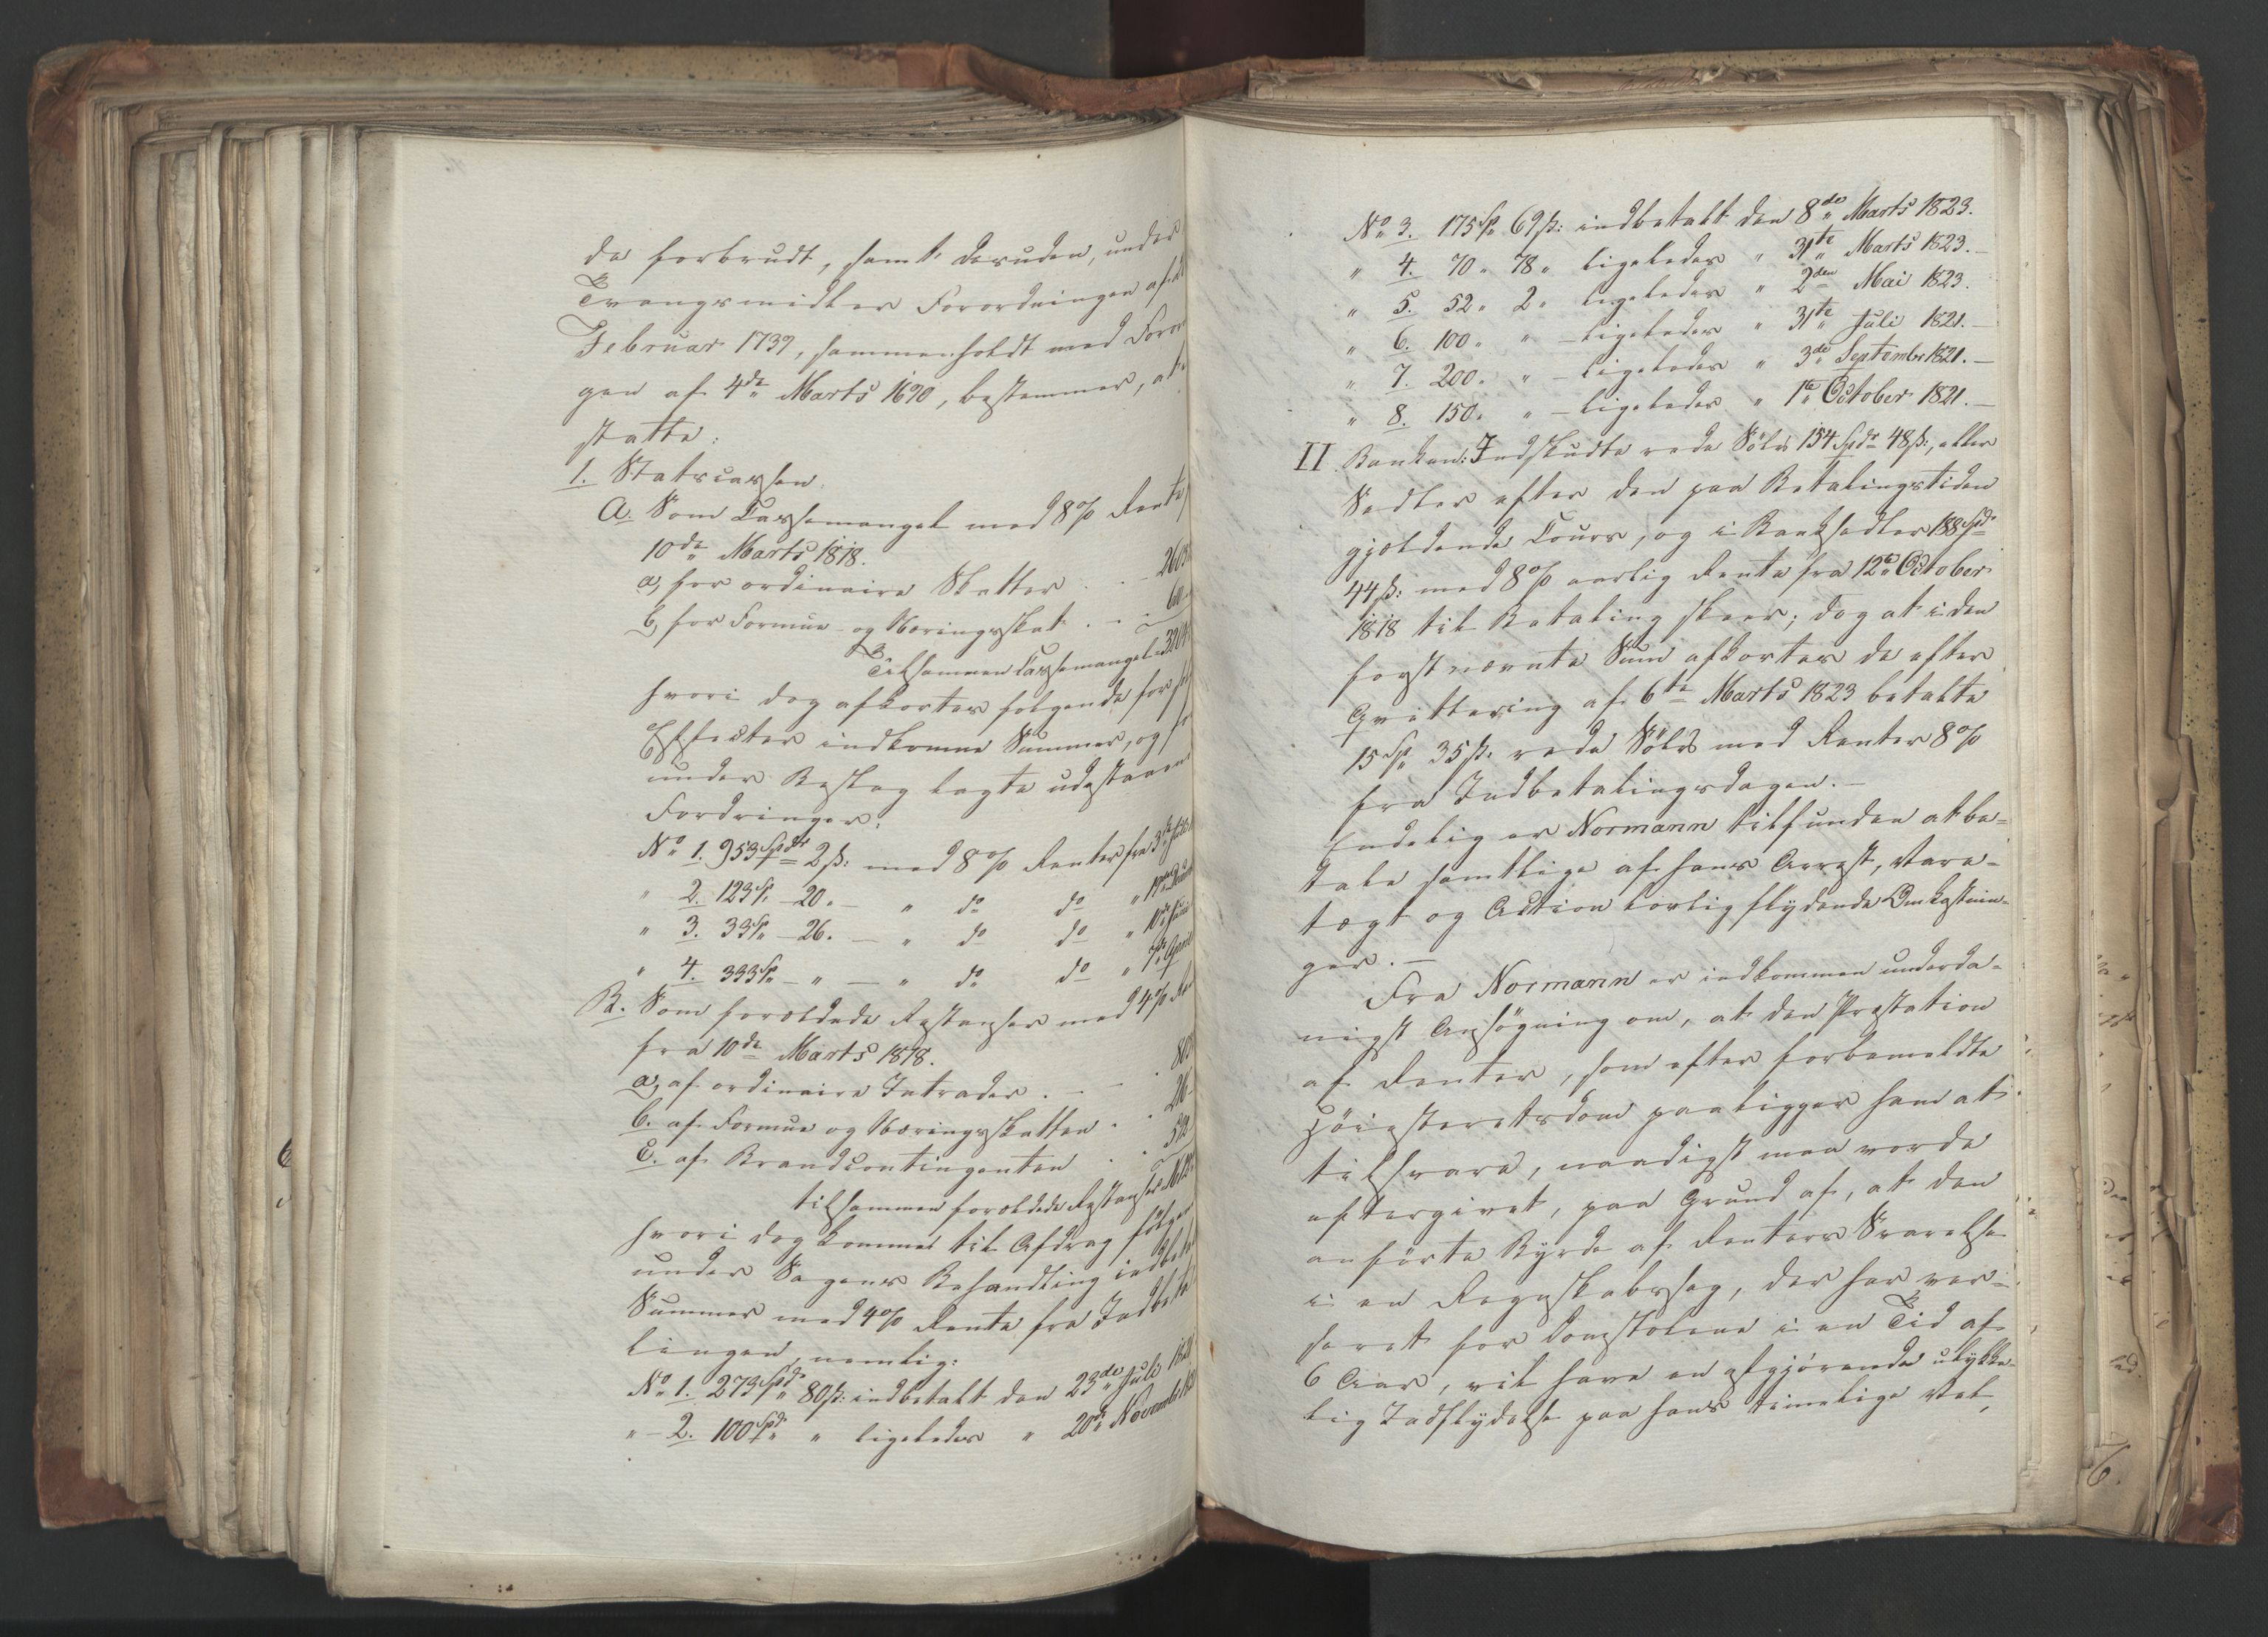 de forbrudt, samt desuden, under
Tvangsmidler Forordningen af
Februar 1739, sammenholdt med Foror
gen af 4de Marts 1690, bestemmer, at
statte:
1. Statscassen.
A. Som Cassemangel med 8% Rente
10de Marts 1818.
a, for ordinaire Skatter . . -
b, for Formue- og Næringsskat . -
Tilsammen Cassemangel
hvori dog afkortes følgende for
Effecter indkomne Summer, og
under Beslag lagte udestaaen
Fordringer:
No 1. 953 Spdr 2 ß: med 8% Renter fra 3de
" 2. 123 Sp. - 20. - " do do " 19de
" 3. 33 Sp. - 26. - " do do " 10de
" 4. 333 Sp. - " - " do do " 7de April
B. Som forældede Restanser med 4%
fra 10de Marts 1818.
a, af ordinaire Intrader . -
b. af Formue og Næringsskatten .
c. af Brandcontingenten . .
tilsammen forældede Restanser
hvori dog kommer til Afdrag følgen
under Sagens Behandling indbetal
Summer med 4% Rente fra Indbeta
lingen, nemlig:
No 1. 273 Spd. 80 ß: indbetalt den 23de Juli
" - 2. 100 Spd. " ligeledes " 20de November
No 3. 175 Sp 69 ß: indbetalt den 8de Marts 1823.
" 4. 70 " 78 " ligeledes " 31te Marts 1823. -
" 5. 52 " 2 " ligeledes " 2den Mai 1823.
" 6. 100 " " - ligeledes " 31te Juli 1821. -
" 7. 200 " " - ligeledes " 3de Septembr 1821. -
" 8. 150 " " - ligeledes " 1te October 1821. -
II. Banken: Indskudte rede Sölv 154 Spdr 48 ß:, eller
Sedler efter den paa Betalingstiden
gjældende Cours, og i Banksedler 188 Spdr
44 ß: med 8% aarlig Rente fra 12te October
1818 til Betaling skeer; dog at i den
förstnævnte Sum afkortes de efter
Qvittering af 6te Marts 1823 betalte
15 Sp 35 ß. rede Sölv med Renter 8%
fra Indbetalingsdagen. -
Endelig er Normann tilfunden at be=
tale samtlige af hans Arrest, Vare=
tægt og Action lovlig flydende Omkostnin=
ger. -
Fra Normann er indkommen underda=
nigst Ansögning om, at den Præstation
af Renter, som efter forbemeldte
Höiesteretsdom paaligger ham at
tilsvare, naadigst maa vorde
eftergivet, paa Grund af, at den
anförte Byrde af Renters Svarelse
i en Regnskabssag, der har ver=
seret for Domstolene i en Tid af
6 Aar, vil have en afgjörende ulykke=
lig Indflydelse paa hans timelige Vel,